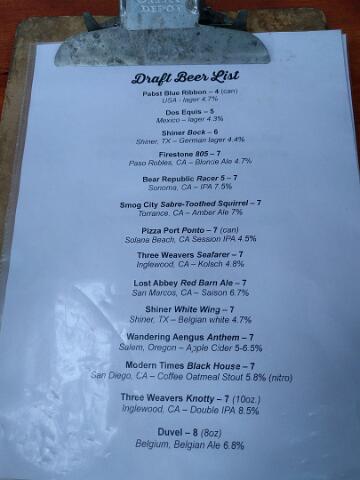 OFFICE
DEPOT
Draft Beer List
Pabst Blue Ribbon – 4 (can)
USA - lager 4.7%
Dos Equis – 5
Mexico – lager 4.3%
Shiner Bock – 6
Shiner, TX – German lager 4.4%
Firestone 805 – 7
Paso Robles, CA – Blonde Ale 4.7%
Bear Republic Racer 5 – 7
Sonoma, CA – IPA 7.5%
Smog City Sabre-Toothed Squirrel – 7
Torrance, CA – Amber Ale 7%
Pizza Port Ponto – 7 (can)
Solana Beach, CA Session IPA 4.5%
Three Weavers Seafarer – 7
Inglewood, CA – Kolsch 4.8%
Lost Abbey Red Barn Ale – 7
San Marcos, CA – Saison 6.7%
Shiner White Wing – 7
Shiner, TX – Belgian white 4.7%
Wandering Aengus Anthem – 7
Salem, Oregon – Apple Cider 5-6.5%
Modern Times Black House – 7
San Diego, CA – Coffee Oatmeal Stout 5.8% (nitro)
Three Weavers Knotty – 7 (10oz.)
Inglewood, CA – Double IPA 8.5%
Duvel – 8 (8oz)
Belgium, Belgian Ale 6.8%